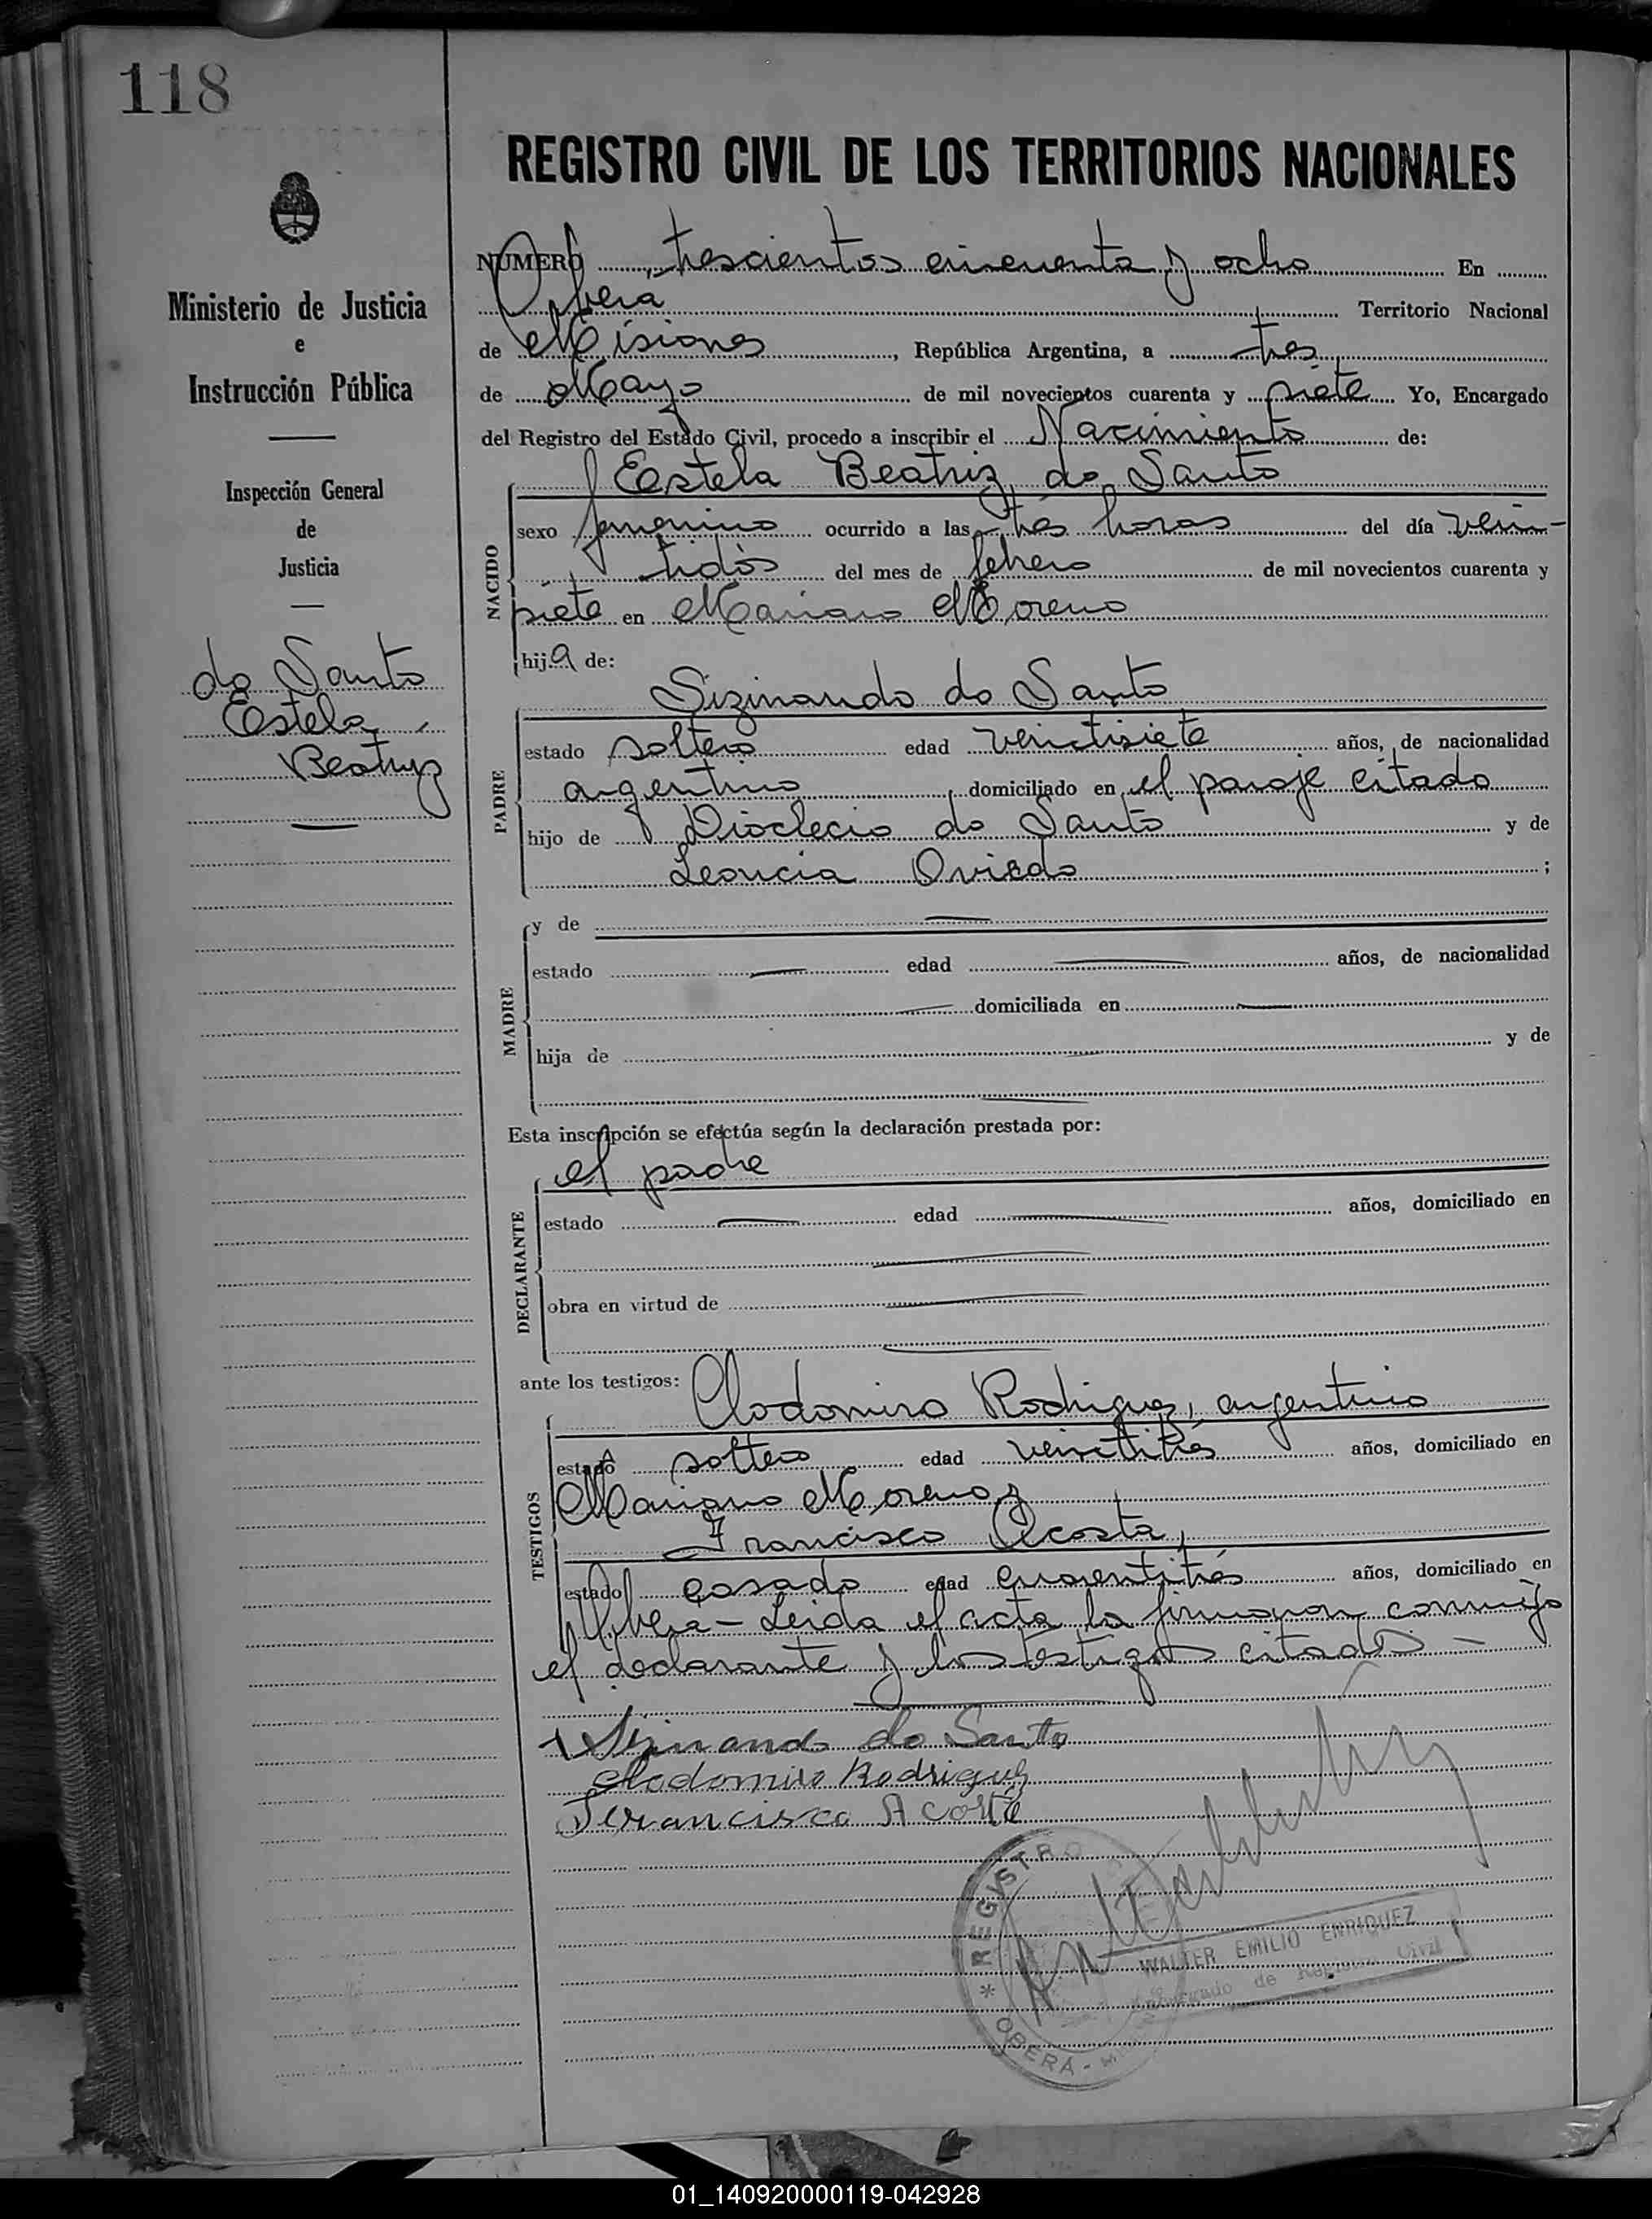 118
REGISTRO CIVIL DE LOS TERRITORIOS NACIONALES
Ministerio de Justicia
e
Instrucción Pública
Inspección General
de
Justicia
do Santo
Estela
Beatriz
NUMERO trescientos cincuenta y ocho En
Obera Territorio Nacional
de Misiones, República Argentina, a tres
de Mayo de mil novecientos cuarenta y siete Yo, Encargado
del Registro del Estado Civil, procedo a inscribir el Nacimiento de:
NACIDO
Estela Beatriz do Santo
sexo femenino ocurrido a las tres horas del día vein-
tidós del mes de febrero de mil novecientos cuarenta y
siete en Mariano Moreno
hija de:
PADRE
Sizinando do Santo
estado soltero edad veinctisiete años, de nacionalidad
argentino domiciliado en el paraje citado
hijo de Dioclecio do Santo y de
Leoncia Oviedo ;
MADRE
y de —
estado — edad — años, de nacionalidad
— domiciliada en —
hija de — y de
—
Esta inscripción se efectúa según la declaración prestada por:
DECLARANTE
el padre
estado — edad — años, domiciliado en
—
obra en virtud de —
—
ante los testigos:
TESTIGOS
Clodomiro Rodriguez, argentino
estado soltero edad veinctitrés años, domiciliado en
Mariano Moreno y
Francisco Acosta,
estado casado edad cuarentitrés años, domiciliado en
Obera - Leida el acta la firmaron conmigo
el declarante y los testigos citados —
Sizinando do Santo
Clodomiro Rodriguez
Francisco Acosta
* REGISTRO
OBERÁ -
WALTER EMILIO ENRIQUEZ
Encargado de Registro Civil
01_140920000119-042928